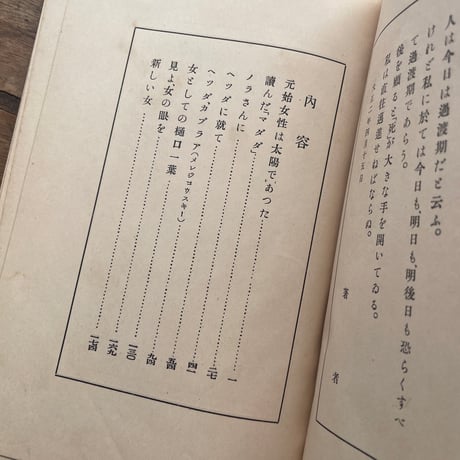 人は今日は過渡期だと云ふ。
けれど私に於ては今日も、明日も、明後日も恐らくすべ
て過渡期であらう。
後を顧ると「死」が大きな手を開いてゐる。
私は直往邁進せねばならぬ。
大正二年四月十五日
著者
內容
元始女性は太陽であつた……一
讀んだ「マグダ」……二七
ノラさんに……四一
ヘッダに就て……五四
ヘッダガブラア(メレロコウスキー)……九四
女としての樋口一葉……一三〇
見よ女の眼を……一六九
新しい女……一七四